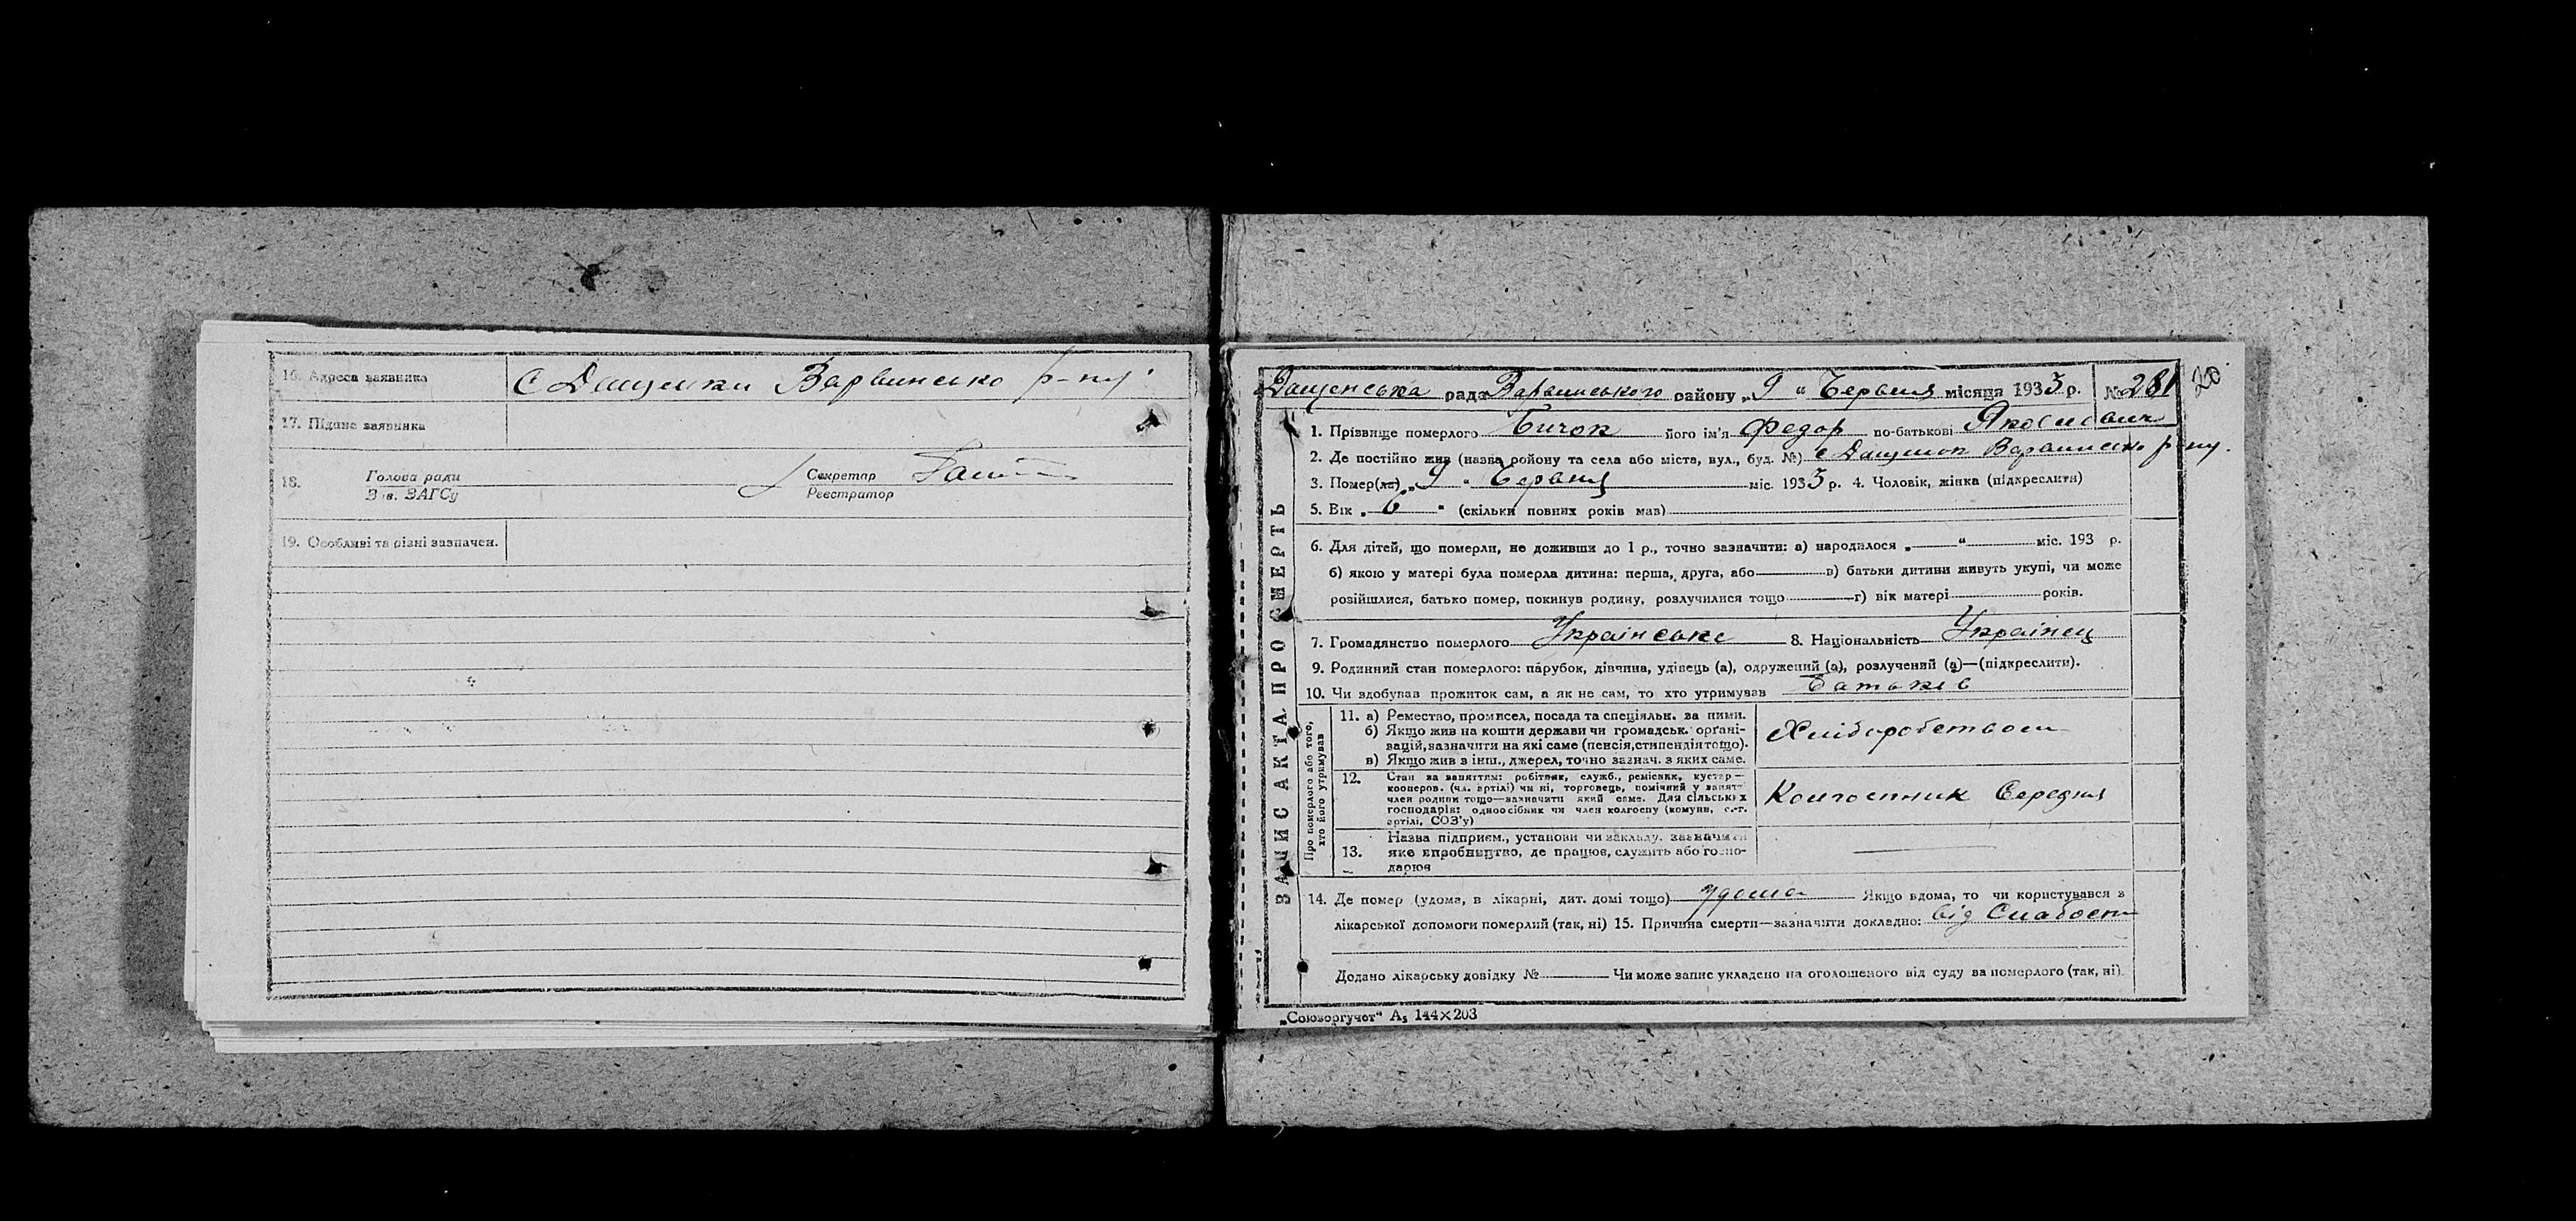 16. Адреса заявника С Дащенки Варвинсько р-ну
17. Підпис заявника
18. Голова ради Секретар
Зав. ЗАГСу Реєстратор
19. Особливі та різні зазначен.
ЗАПИС АКТА ПРО СМЕРТЬ
Дащенська рада Варвинського району „9“ Червня місяця 1933 р. № 281
20
1. Прізвище померлого Бичок його ім'я Федор по-батькові Яковлович
2. Де постійно жив (назва району та села або міста, вул., буд. №) с Дащенки Варвинсько р-ну.
3. Помер(ла) „9“ Червня міс. 1933 р. 4. Чоловік, жінка (підкреслити)
5. Вік „6“ (скільки повних років мав)
6. Для дітей, що померли, не доживши до 1 р., точно зазначити: а) народилося „ “ міс. 193 р.
б) якою у матері була померла дитина: перша, друга, або в) батьки дитини живуть укупі, чи може
розійшлися, батько помер, покинув родину, розлучилися тощо г) вік матері років.
7. Громадянство померлого Українське 8. Національність Українец
9. Родинний стан померлого: парубок, дівчина, удівець (а), одружений (а), розлучений (а)—(підкреслити).
10. Чи здобував прожиток сам, а як не сам, то хто утримував Батьків
Про померлого або того,
хто його утримував
11. а) Ремество, промисел, посада та спеціяльн. за ними.
б) Якщо жив на кошти держави чи громадськ. органі-
зацій, зазначити на які саме (пенсія, стипендія тощо).
в) Якщо жив з інш., джерел, точно зазнач. з яких саме.
Хліборобством
12. Стан за заняттям: робітник, служб., ремісник, кустар—
кооперов. (чл. артілі) чи ні, торговець, помічний у занят-
член родини тощо—зазначити який саме. Для сільських
господарів: одноосібник чи член колгоспу (комуни, с.-г.
артілі, СОЗ'у)
Колгоспник Середняк
13. Назва підприєм., установи чи закладу. зазначити
яке виробництво, де працює, служить або госпо-
дарює
14. Де помер (удома, в лікарні, дит. домі тощо) удома Якщо вдома, то чи користувався з
лікарської допомоги померлий (так, ні) 15. Причина смерти—зазначити докладно: від Слабости
Додано лікарську довідку № Чи може запис укладено на оголошеного від суду за померлого (так, ні)
„Союзоргучет“ А₅ 144×203